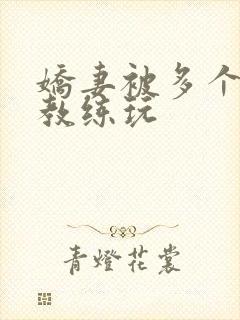 嬌妻被多个
教练玩
青燈花裳